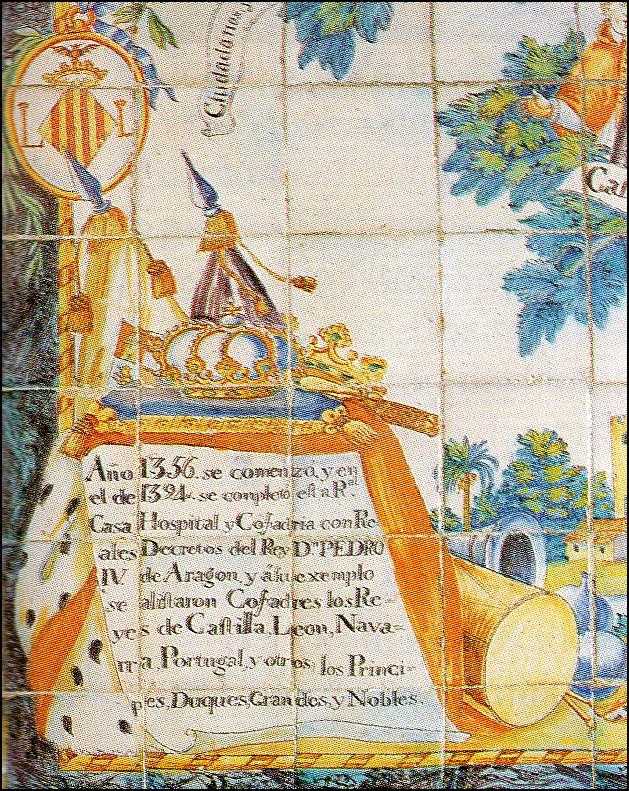 Ciudadanos
L L
Ca
Año 1356. se comenzó, y en
el de 1394. se completo esta R.al
Casa Hospital y Cofadria con Re-
ales Decretos del Rey D.n PEDRO
IV. de Aragon, y á su exemplo
se alistaron Cofadres los Re-
yes de Castilla, Leon, Nava-
rra Portugal, y otros, los Princi-
pes, Duques, Grandes, y Nobles.